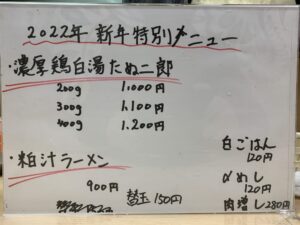 2022年 新年特別メニュー
・濃厚鶏白湯たぬ二郎
200g 1.000円
300g 1.100円
400g 1.200円
・粕汁ラーメン
900円
替玉 150円
白ごはん
120円
〆めし
120円
肉増し280円